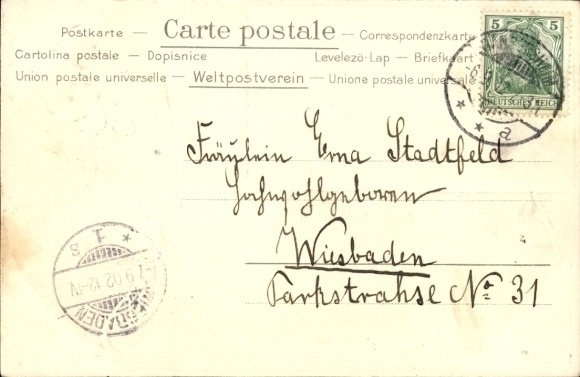 Postkarte — Carte postale — Correspondenzkarte
Cartolina postale — Dopisnice Levelező-Lap — Briefkaart
Union postale universelle — Weltpostverein — Unione postale universale
5 5
DEUTSCHES REICH
a
Fräulein Erna Stadtfeld
Hochwohlgeboren
Wiesbaden
Parkstrahse No 31
* 1 S
9 02 12-
SBADEN